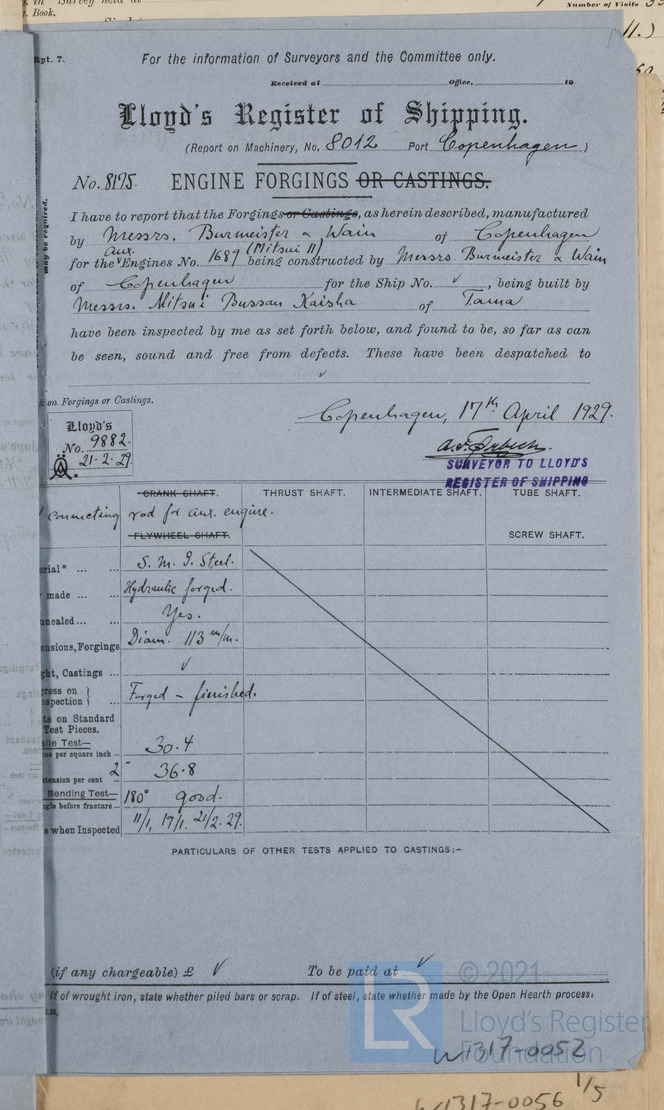 Number of Visits
. Book.
pt. 7.
For the information of Surveyors and the Committee only.
Received at Office, 19
Lloyd's Register of Shipping.
(Report on Machinery, No. 8012 Port Copenhagen)
No. 8175. ENGINE FORGINGS OR CASTINGS.
I have to report that the Forgings or Castings, as herein described, manufactured
by Messrs. Burmeister & Wain of Copenhagen
for the Aux. Engines No. 1689 (Mitsui 11) being constructed by Messrs Burmeister & Wain
of Copenhagen for the Ship No. ✓, being built by
Messrs. Mitsui Bussan Kaisha of Tama
have been inspected by me as set forth below, and found to be, so far as can
be seen, sound and free from defects. These have been despatched to
✓
may be required.
on Forgings or Castings.
Copenhagen, 17th April 1929.
Lloyd's
No. 9882.
21.2.29.
SURVEYOR TO LLOYD'S
REGISTER OF SHIPPING
CRANK SHAFT. THRUST SHAFT. INTERMEDIATE SHAFT. TUBE SHAFT.
connecting rod for aux. engine.
FLYWHEEL SHAFT. SCREW SHAFT.
erial* ... ... S. M. I. Steel.
made ... ... Hydraulic forged.
nealed ... ... Yes.
ensions, Forgings Diam. 113 m/m.
ght, Castings ... ✓
ress on
spection Forged - finished.
ts on Standard
Test Pieces.
ile Test—
ns per square inch ... 30.4
tension per cent 2" 36.8
Bending Test—
gle before fracture ... 180° good.
s when Inspected 11/1, 17/1. 21/2.29.
PARTICULARS OF OTHER TESTS APPLIED TO CASTINGS:—
(if any chargeable) £ ✓ To be paid at ✓
If of wrought iron, state whether piled bars or scrap. If of steel, state whether made by the Open Hearth process.
LR © 2021
Lloyd's Register
Foundation
W1317-0052
1/5
W1317-0056